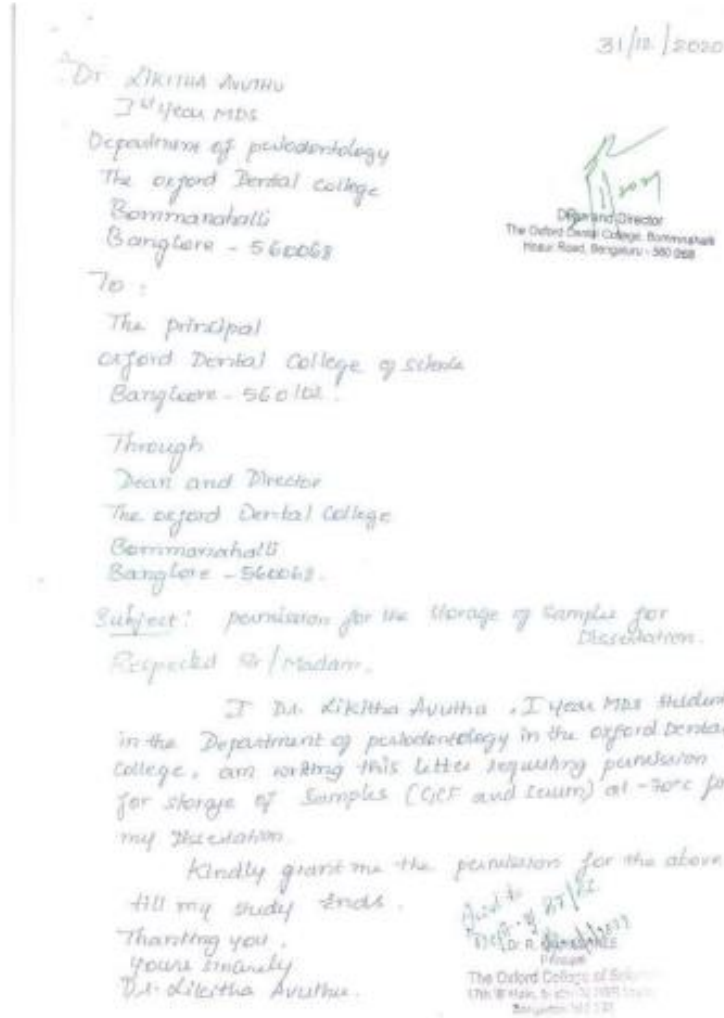 31/12/2020
Dr LIKITHA AVUTHU
Ist year MDS
Department of periodontology
The oxford Dental college
Bommanahalli
Banglore - 560068
Dean and Director
The Oxford Dental College, Bommanahalli
Hosur Road, Bengaluru - 560 068
To :
The principal
oxford Dental College of
Banglore - 560102.
Through
Dean and Director
The oxford Dental College
Bommanahalli
Banglore - 560068.
Subject: permission for the storage of samples for
Dissertation.
Respected Sir/Madam,
I Dr. Likitha Avuthu, I year MDS student
in the Department of periodontology in the oxford Dental
college, am writing this letter requesting permission
for storage of samples (GCF and serum) at -70°c for
my Dissertation.
Kindly grant me the permission for the above
till my study ends.
Thanking you,
yours sincerely
Dr. Likitha Avuthu.
Dr. R.
Principal
The Oxford College of